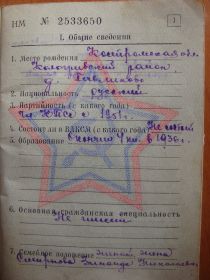 НМ № 2533650
1
I. Общие сведения
1. Место рождения Костромская обл.
Кологривский район
д.
2. Национальность русский
3. Партийность (с какого года)
чл. КПСС с 1951 г.
4. Состоит ли в ВЛКСМ (с какого года) Не имеет
5. Образование Окончил 4 кл. в 1936 г.
6. Основная гражданская специальность
Не имеет
7. Семейное положение жена
Смирнова Зинаида Николаевна